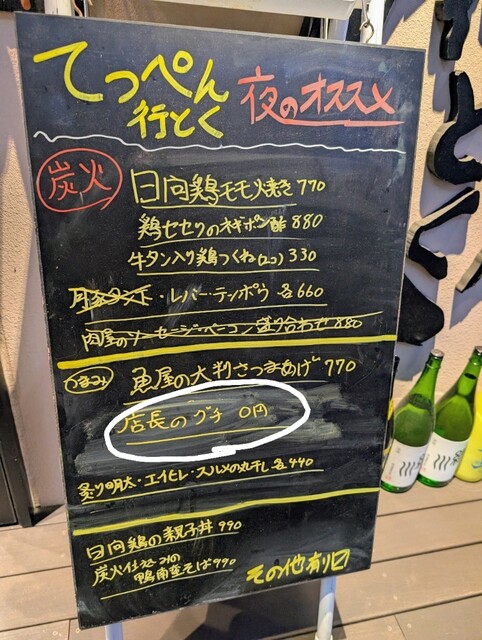 てっぺん
行とく
夜のオススメ
炭火
日向鶏モモ焼き 770
鶏セセリのネギポン酢 880
牛タン入り鶏つくね(2コ) 330
・レバー・テッポウ 各660
肉屋のソーセージベーコン盛り合わせ 880
つまみ
魚屋の大判さつまあげ 770
店長のグチ 0円
炙り明太・エイヒレ・スルメの丸干し 各440
日向鶏の親子丼 990
炭火仕込みの
鴨南蛮そば 990
その他有り